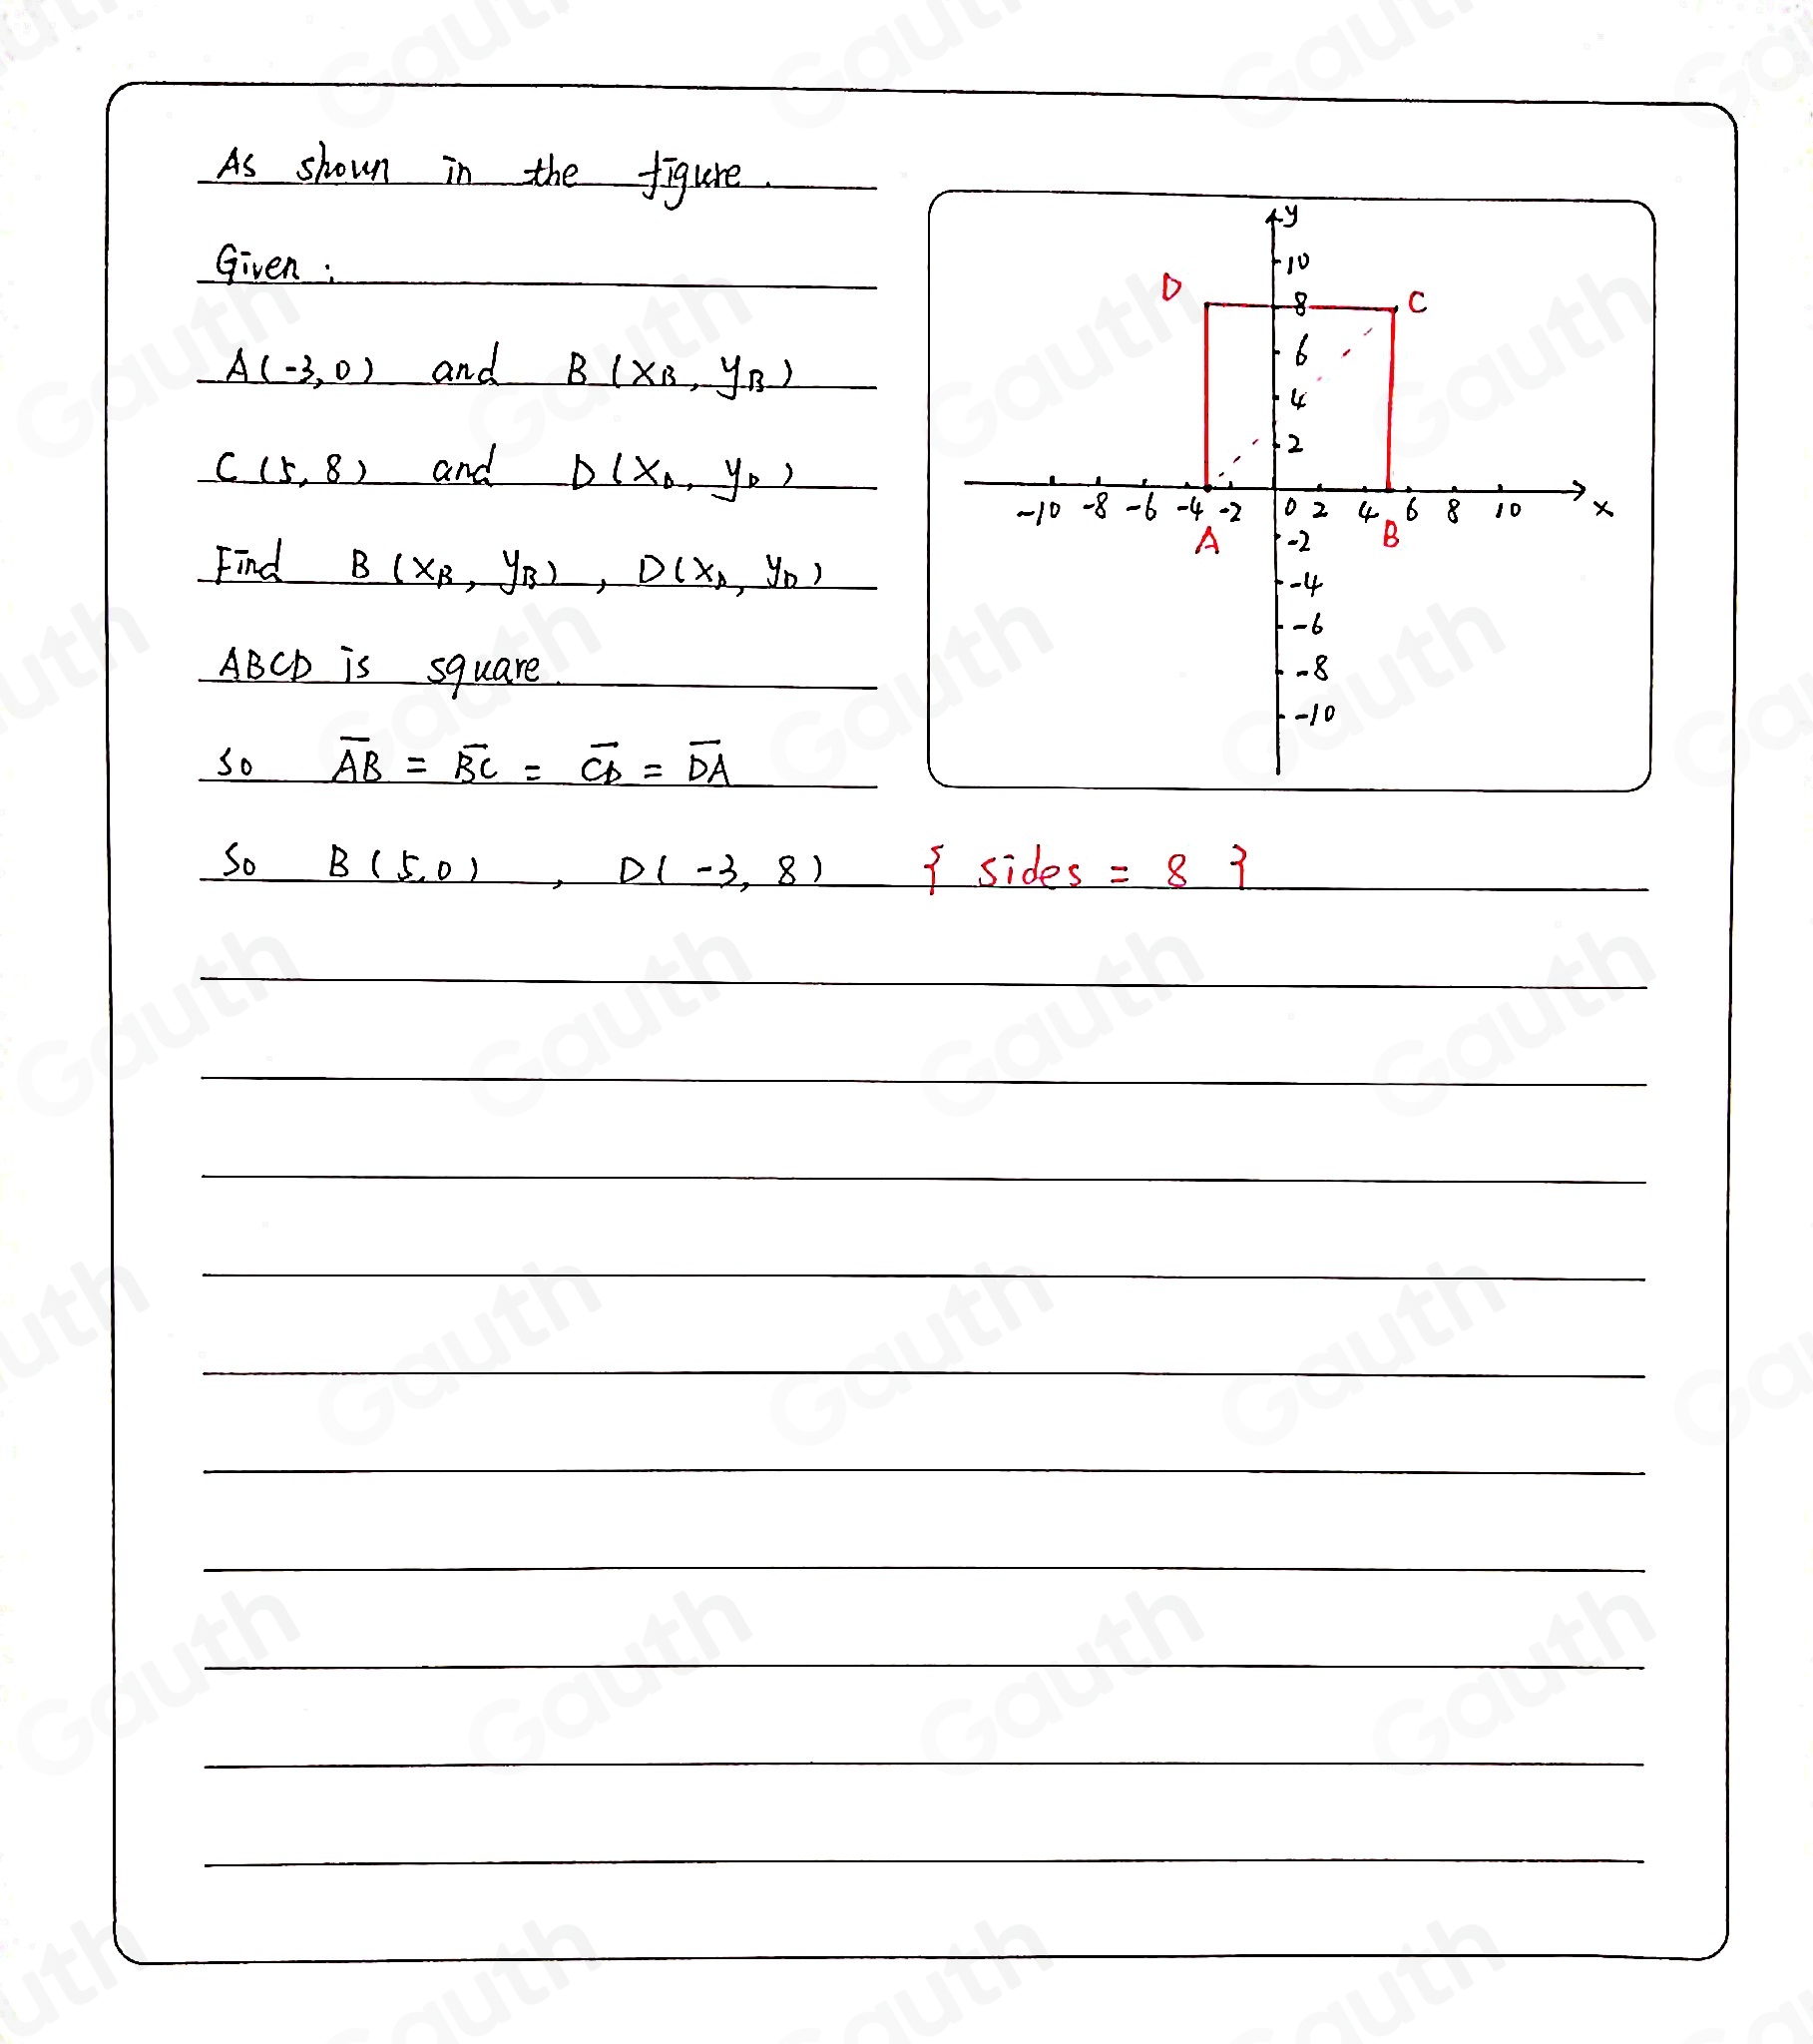 As shown in the figure.
Given:
A(-3,0) and B(xB, yB)
C(5,8) and D(xD, yD)
Find B(xB, yB), D(xD, yD)
ABCD is square.
So AB = BC = CD = DA
So B(5,0), D(-3,8) { sides = 8 }
y
10
D
8
C
6
4
2
-10 -8 -6 -4 -2 0 2 4 6 8 10 x
A
-2
B
-4
-6
-8
-10
Gauth